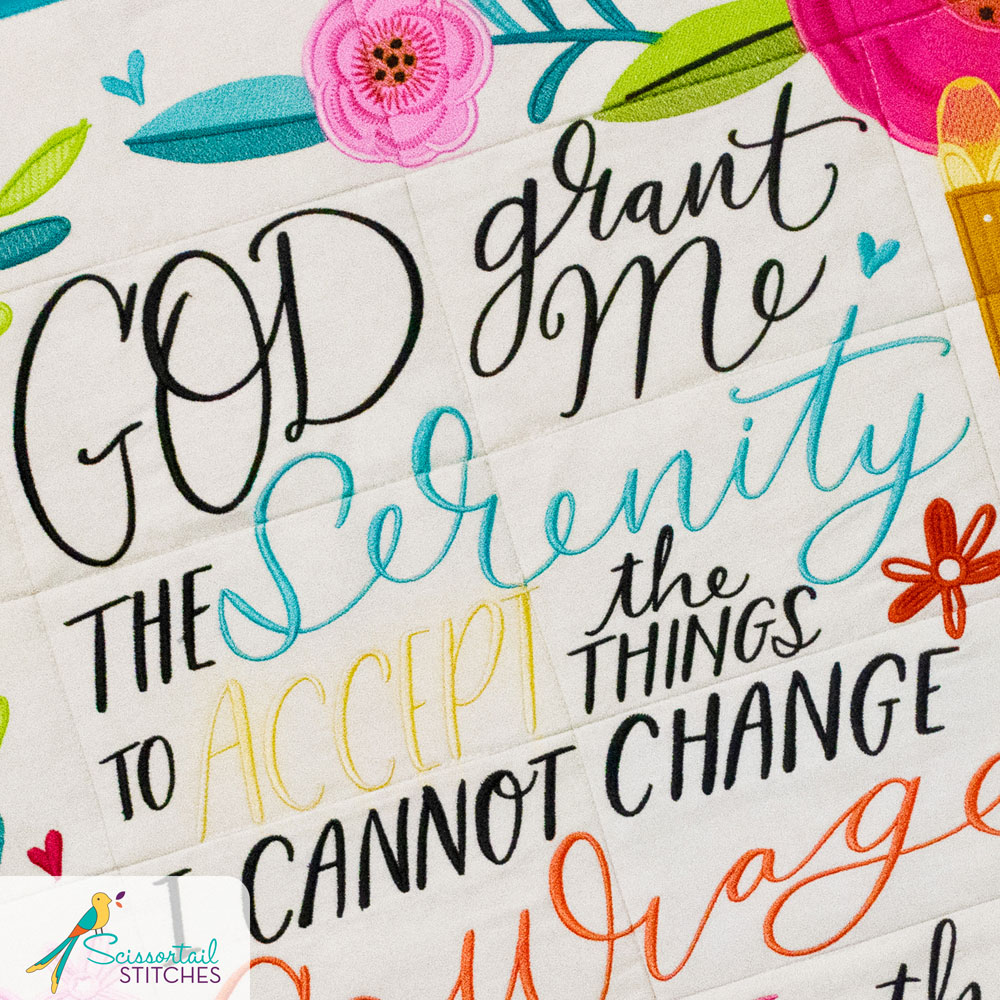 GOD grant
Me
THE Serenity
TO ACCEPT the
THINGS
I CANNOT CHANGE
Courage
th
Scissortail
STITCHES